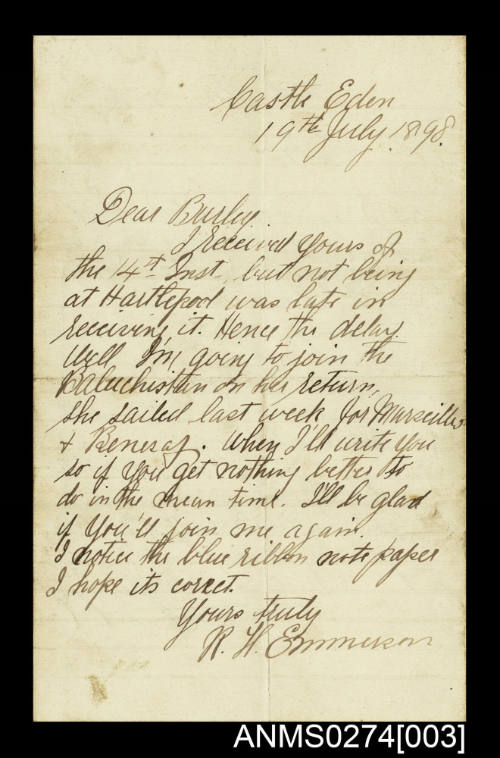 Castle Eden
19th July 1898.
Dear Burley.
I received yours of
the 14th Inst, but not being
at Hartlepool was late in
receiving it. Hence the delay
Well I'm going to join the
Baluchistan on her return,
she sailed last week for Marseilles
&. When I'll write you
so if you get nothing better to
do in the mean time. I'll be glad
if you'll join me again.
I notice the blue ribbon note paper
I hope its corect.
Yours truly
R. H. Emmerson
ANMS0274[003]